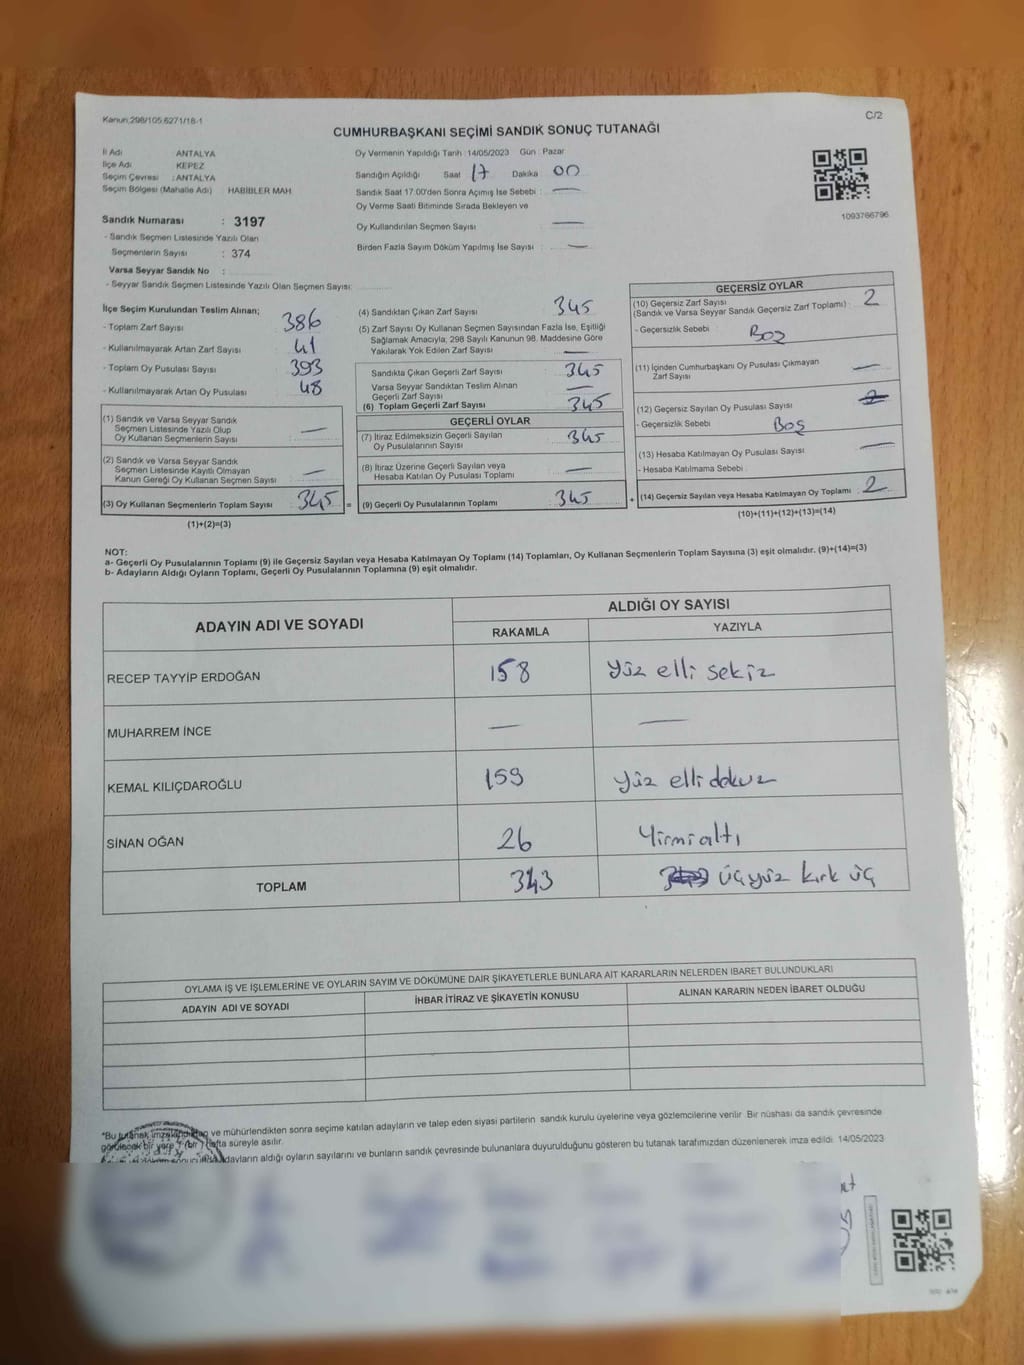 Kanun:298/105,6271/18-1
C/2
CUMHURBAŞKANI SEÇİMİ SANDIK SONUÇ TUTANAĞI
İl Adı ANTALYA
İlçe Adı KEPEZ
Seçim Çevresi : ANTALYA
Seçim Bölgesi (Mahalle Adı) HABİBLER MAH
Sandık Numarası : 3197
- Sandık Seçmen Listesinde Yazılı Olan
Seçmenlerin Sayısı : 374
Varsa Seyyar Sandık No :
- Seyyar Sandık Seçmen Listesinde Yazılı Olan Seçmen Sayısı:
Oy Vermenin Yapıldığı Tarih :14/05/2023 Gün : Pazar
Sandığın Açıldığı Saat 17 Dakika 00
Sandık Saat 17.00'den Sonra Açımış İse Sebebi : —
Oy Verme Saati Bitiminde Sırada Bekleyen ve
Oy Kullandırılan Seçmen Sayısı —
Birden Fazla Sayım Döküm Yapılmış İse Sayısı : —
1093766796
İlçe Seçim Kurulundan Teslim Alınan;
- Toplam Zarf Sayısı 386
- Kullanılmayarak Artan Zarf Sayısı 41
- Toplam Oy Pusulası Sayısı 393
- Kullanılmayarak Artan Oy Pusulası 48
(1) Sandık ve Varsa Seyyar Sandık
Seçmen Listesinde Yazılı Olup
Oy Kullanan Seçmenlerin Sayısı —
(2) Sandık ve Varsa Seyyar Sandık
Seçmen Listesinde Kayıtlı Olmayan
Kanun Gereği Oy Kullanan Seçmen Sayısı —
(3) Oy Kullanan Seçmenlerin Toplam Sayısı 345 =
(1)+(2)=(3)
(4) Sandıktan Çıkan Zarf Sayısı 345
(5) Zarf Sayısı Oy Kullanan Seçmen Sayısından Fazla İse, Eşitliği
Sağlamak Amacıyla, 298 Sayılı Kanunun 98. Maddesine Göre
Yakılarak Yok Edilen Zarf Sayısı —
Sandıkta Çıkan Geçerli Zarf Sayısı 345
Varsa Seyyar Sandıktan Teslim Alınan
Geçerli Zarf Sayısı —
(6) Toplam Geçerli Zarf Sayısı 345
GEÇERLİ OYLAR
(7) İtiraz Edilmeksizin Geçerli Sayılan
Oy Pusulalarının Sayısı 345
(8) İtiraz Üzerine Geçerli Sayılan veya
Hesaba Katılan Oy Pusulası Toplamı —
(9) Geçerli Oy Pusulalarının Toplamı 345 +
GEÇERSİZ OYLAR
(10) Geçersiz Zarf Sayısı
(Sandık ve Varsa Seyyar Sandık Geçersiz Zarf Toplamı) : 2
- Geçersizlik Sebebi Boş
(11) İçinden Cumhurbaşkanı Oy Pusulası Çıkmayan
Zarf Sayısı —
(12) Geçersiz Sayılan Oy Pusulası Sayısı
- Geçersizlik Sebebi Boş
(13) Hesaba Katılmayan Oy Pusulası Sayısı —
- Hesaba Katılmama Sebebi
(14) Geçersiz Sayılan veya Hesaba Katılmayan Oy Toplamı 2
(10)+(11)+(12)+(13)=(14)
NOT:
a- Geçerli Oy Pusulalarının Toplamı (9) ile Geçersiz Sayılan veya Hesaba Katılmayan Oy Toplamı (14) Toplamları, Oy Kullanan Seçmenlerin Toplam Sayısına (3) eşit olmalıdır. (9)+(14)=(3)
b- Adayların Aldığı Oyların Toplamı, Geçerli Oy Pusulalarının Toplamına (9) eşit olmalıdır.
ADAYIN ADI VE SOYADI ALDIĞI OY SAYISI
RAKAMLA YAZIYLA
RECEP TAYYİP ERDOĞAN 158 Yüz elli sekiz
MUHARREM İNCE — —
KEMAL KILIÇDAROĞLU 159 Yüz elli dokuz
SİNAN OĞAN 26 Yirmi altı
TOPLAM 343 üçyüz kırk üç
OYLAMA İŞ VE İŞLEMLERİNE VE OYLARIN SAYIM VE DÖKÜMÜNE DAİR ŞİKAYETLERLE BUNLARA AİT KARARLARIN NELERDEN İBARET BULUNDUKLARI
ADAYIN ADI VE SOYADI İHBAR İTİRAZ VE ŞİKAYETİN KONUSU ALINAN KARARIN NEDEN İBARET OLDUĞU
*Bu tutanak ve mühürlendikten sonra seçime katılan adayların ve talep eden siyasi partilerin sandık kurulu üyelerine veya gözlemcilerine verilir. Bir nüshası da sandık çevresinde
görülecek bir yere hafta süreyle asılır.
adayların aldığı oyların sayılarını ve bunların sandık çevresinde bulunanlara duyurulduğunu gösteren bu tutanak tarafımızdan düzenlenerek imza edildi. 14/05/2023